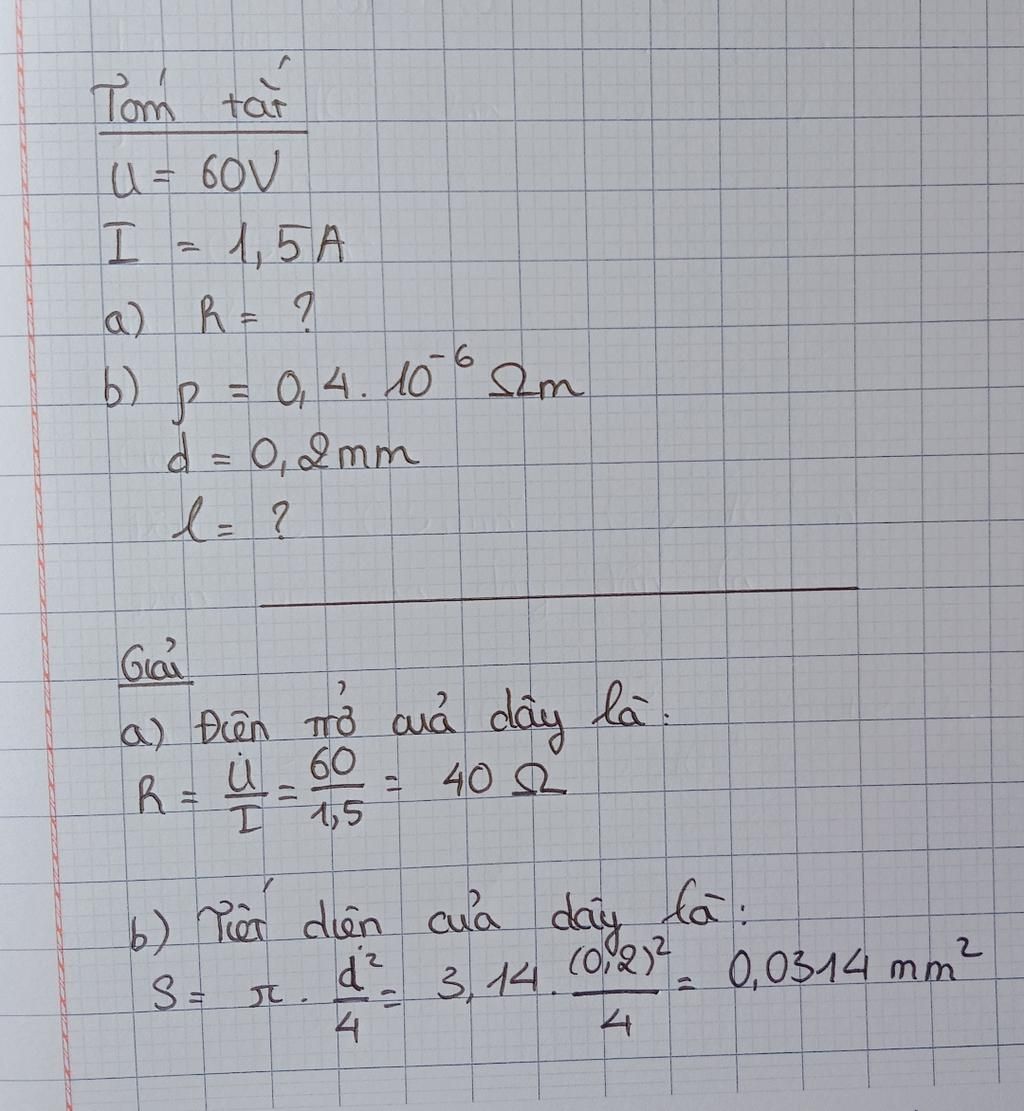 Tóm tắt
U = 60V
I = 1,5A
a) R = ?
b) ρ = 0,4. 10⁻⁶ Ωm
d = 0,2mm
l = ?
Giải
a) Điện trở của dây là:
R = U/I = 60/1,5 = 40 Ω
b) Tiết diện của dây là:
S = π. d²/4 = 3,14. (0,2)²/4 = 0,0314 mm²